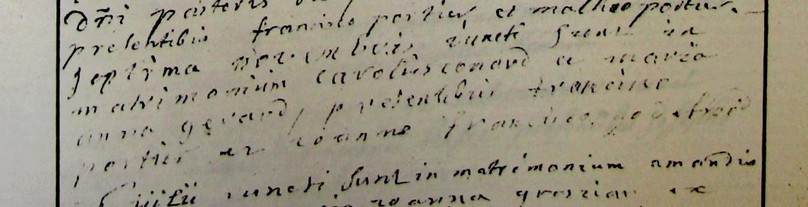 Dñi pastoris
presentibis francisco portier et matheo portier
septima novembris iuncti sunt in
matrimonium carolus conard et maria
anna gerard, presentibus francisco
portier et ioanne francisco godeffroid
iuncti sunt in matrimonium amandus
ioanna